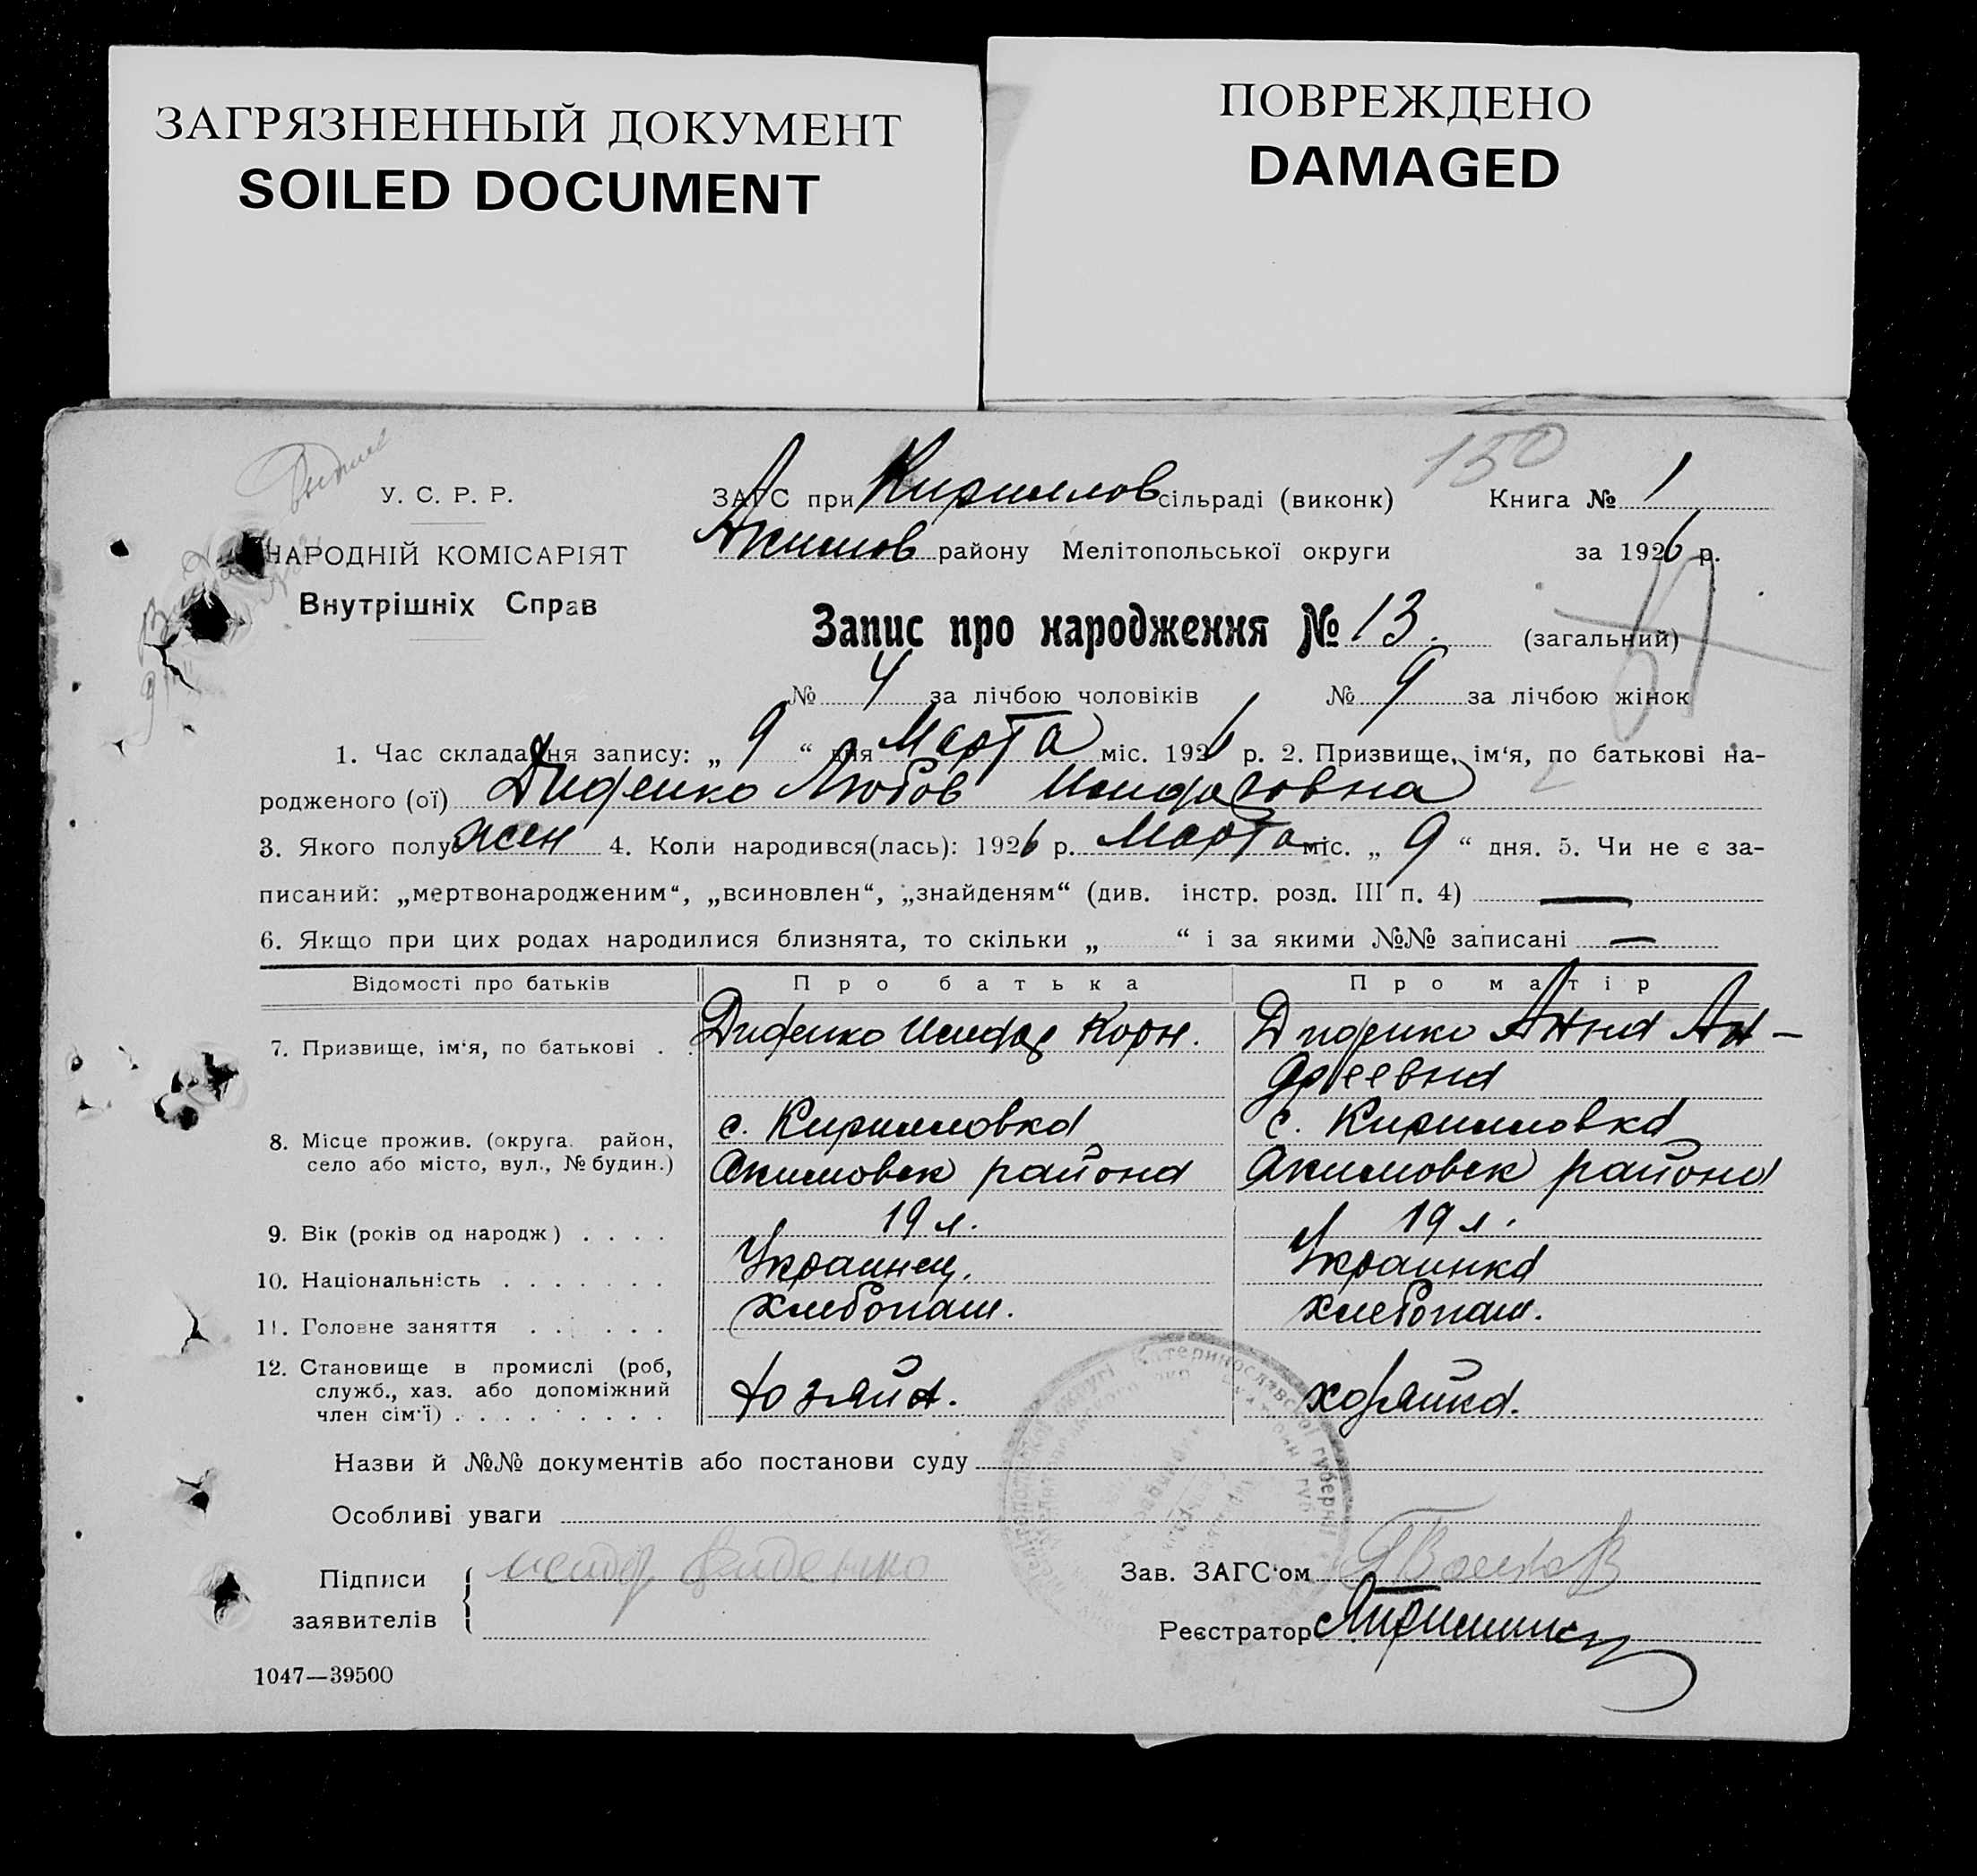 ЗАГРЯЗНЕННЫЙ ДОКУМЕНТ
SOILED DOCUMENT
ПОВРЕЖДЕНО
DAMAGED
150
У. С. Р. Р.
НАРОДНІЙ КОМІСАРІЯТ
Внутрішніх Справ
ЗАГС при Кириллов сільраді (виконк) Книга № 1
Акимов району Мелітопольської округи за 1926 р.
Запис про народження № 13. (загальний)
№ 4 за лічбою чоловіків № 9 за лічбою жінок
1. Час складання запису: „ 9 “ дня Марта міс. 1926 р. 2. Призвище, ім‘я, по батькові на-
родженого (ої) Диденко Любов Исидоговна
3. Якого полу жен 4. Коли народився(лась): 1926 р. Марта міс. „ 9 “ дня. 5. Чи не є за-
писаний: „мертвонародженим“, „всиновлен“, „знайденям“ (див. інстр. розд. III п. 4) —
6. Якщо при цих родах народилися близнята, то скільки „ “ і за якими №№ записані —
Відомості про батьків Про батька Про матір
7. Призвище, ім‘я, по батькові . . Диденко Исидор Корн. Диденко Анна Ан-
дреевна
8. Місце прожив. (округа. район, село або місто, вул., № будин.) с. Кирилловка с. Кирилловка
Акимовск района Акимовск района
9. Вік (років од народж) . . . . 19 л. 19 л.
10. Національність . . . . . . . Украинец. Украинка
11. Головне заняття . . . . . . Хлебопаш. Хлебопаш.
12. Становище в промислі (роб, служб., хаз. або допоміжний член сім‘ї) . . . . . . . . . Хозяин. хозяйка.
Назви й №№ документів або постанови суду
Особливі уваги
Підписи заявителів Исидор Диденко
Зав. ЗАГС‘ом
Реєстратор
1047—39500